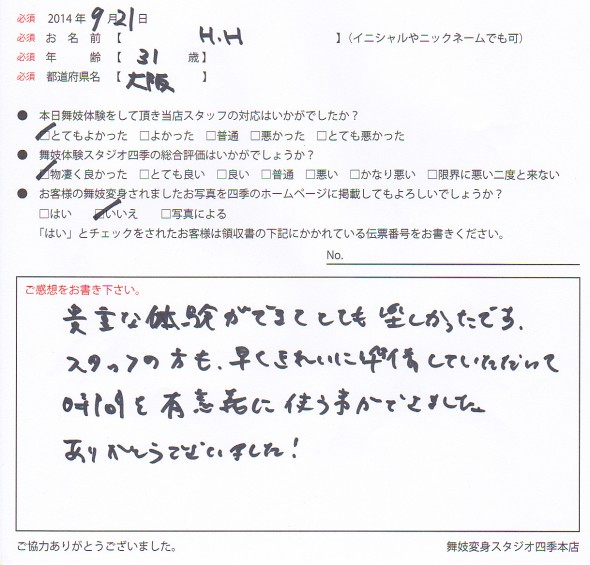 必須 2014年 9月21日
必須 お名前【 H.H 】（イニシャルやニックネームでも可）
必須 年齢【 31 歳】
必須 都道府県名【 大阪 】
● 本日舞妓体験をして頂き当店スタッフの対応はいかがでしたか？
☑とてもよかった □よかった □普通 □悪かった □とても悪かった
● 舞妓体験スタジオ四季の総合評価はいかがでしょうか？
☑物凄く良かった □とても良い □良い □普通 □悪い □かなり悪い □限界に悪い二度と来ない
● お客様の舞妓変身されましたお写真を四季のホームページに掲載してもよろしいでしょうか？
□はい ☑いいえ □写真による
「はい」とチェックをされたお客様は領収書の下記にかかれている伝票番号をお書きください。
No.
ご感想をお書き下さい。
貴重な体験ができてとても楽しかったです。
スタッフの方も、早くきれいに準備していただいて
時間を有意義に使う事ができました。
ありがとうございました！
ご協力ありがとうございました。
舞妓変身スタジオ四季本店